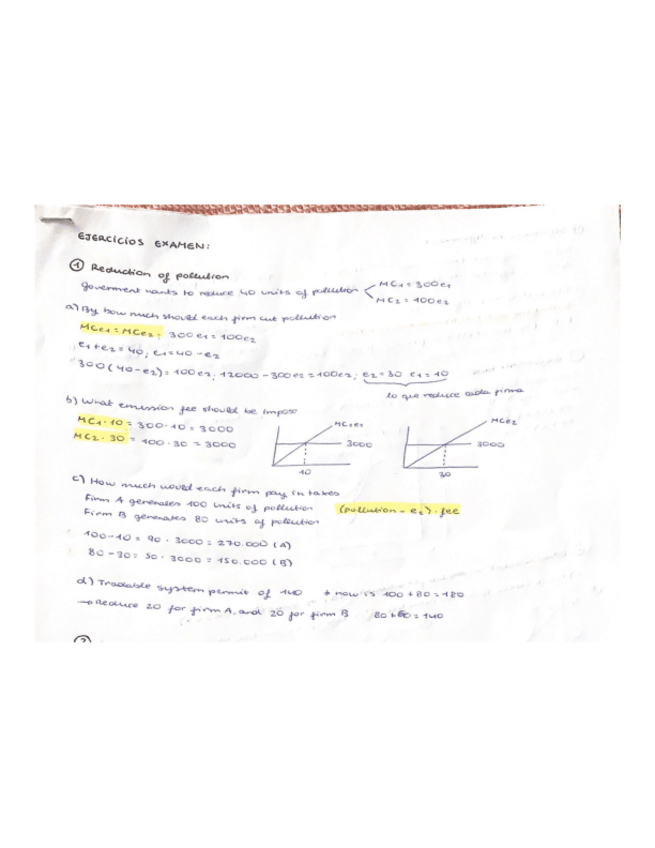 EJERCICIOS EXAMEN:
① Reduction of pollution
government wants to reduce 40 units of pollution < MC1 = 300e1
MC2 = 100e2
a) By how much should each firm cut pollution
MCe1 = MCe2; 300e1 = 100e2
e1+e2 = 40; e1 = 40-e2
300(40-e2) = 100e2; 12000-300e2 = 100e2; e2 = 30 e1 = 10
lo que reduce cada firma
b) What emission fee should be impose
MC1·10 = 300·10 = 3000
MC2·30 = 100·30 = 3000
MC1e1
3000
10
MCe2
3000
30
c) How much would each firm pay in taxes
Firm A generates 100 units of pollution (pollution - e1)·fee
Firm B generates 80 units of pollution
100-10 = 90·3000 = 270.000 (A)
80-30 = 50·3000 = 150.000 (B)
d) Tradable system permit of 140 * now is 100+80 = 180
→ Reduce 20 for firm A, and 20 for firm B 80+60 = 140